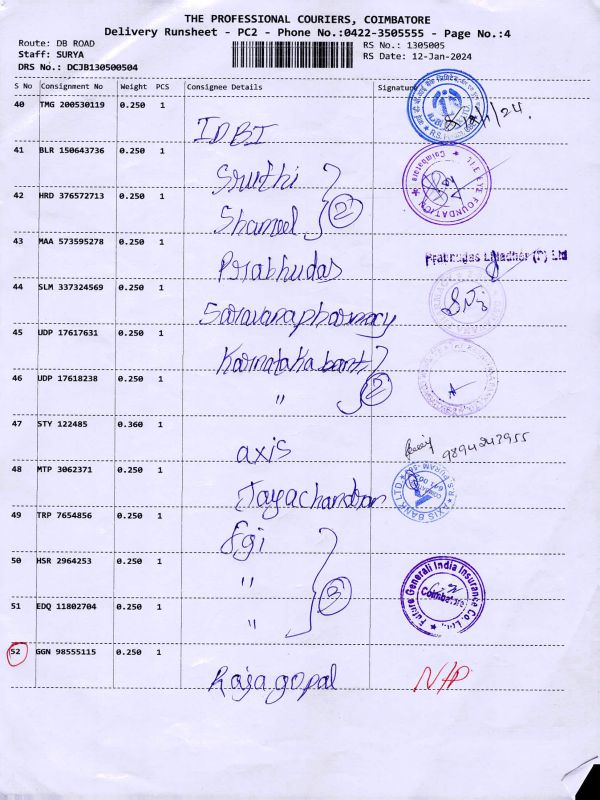 THE PROFESSIONAL COURIERS, COIMBATORE
Delivery Runsheet - PC2 - Phone No.:0422-3505555 - Page No.:4
Route: DB ROAD
RS No.: 1305005
Staff: SURYA
RS Date: 12-Jan-2024
DRS No.: DCJB130500504
S No Consignment No Weight PCS Consignee Details Signature
40 TMG 200530119 0.250 1
IDBI
41 BLR 150643736 0.250 1
Sruthi
42 HRD 376572713 0.250 1
2
Shameel
EYE FOUNDATION
Coimbatore
43 MAA 573595278 0.250 1
Prabhudas
Prabhudas Liladher (P) Ltd
44 SLM 337324569 0.250 1
Saravanapharmacy
45 UDP 17617631 0.250 1
Karnataka bank
46 UDP 17618238 0.250 1
" 2
47 STY 122485 0.360 1
axis
9894243955
48 MTP 3062371 0.250 1
Jayachandran
AXIS BANK LTD
49 TRP 7654856 0.250 1
Fgi
50 HSR 2964253 0.250 1
" 3
Future Generali India Insurance Co. Ltd
Coimbatore
51 EDQ 11802704 0.250 1
"
52 GGN 98555115 0.250 1
Rajagopal N/P